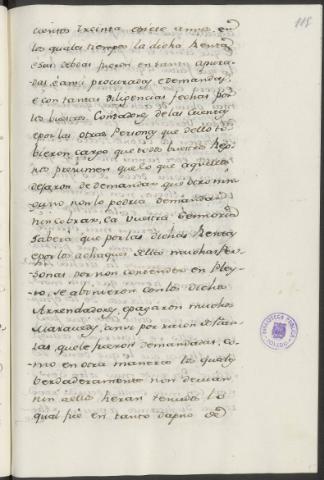 118
cientos treinta e siete annos, en
los quales tiempos la dicha Rentas
e sus debdas fueron en tanto apura-
das, e ansi procuradas e demandas,
e con tantas diligencias fechas por
los buestros Contadores de las Cuentas
e por las otras Personas que dello to-
bieron cargo que todos buestros Rey-
nos presumen que lo que aquellos
dejaron de demandar que otro nin-
guno non lo podria demandar
nin cobrar, ca vuestra Sennoria
sabera que por las dichas Rentas
e por lo achaques dellas muchas Per-
sonas por non contender en Pley-
to, se abinieron con los dichos
Arrendadores, e pagaron muchos
Maravedis, ansi por razon de fian-
zas, que le fueron demandadas, co-
mo en otra manera los quales
berdaderamente non devian
nin a ellos heran tenudos lo
qual fue en tanto dapno de
BIBLIOTECA PUBLICA
TOLEDO